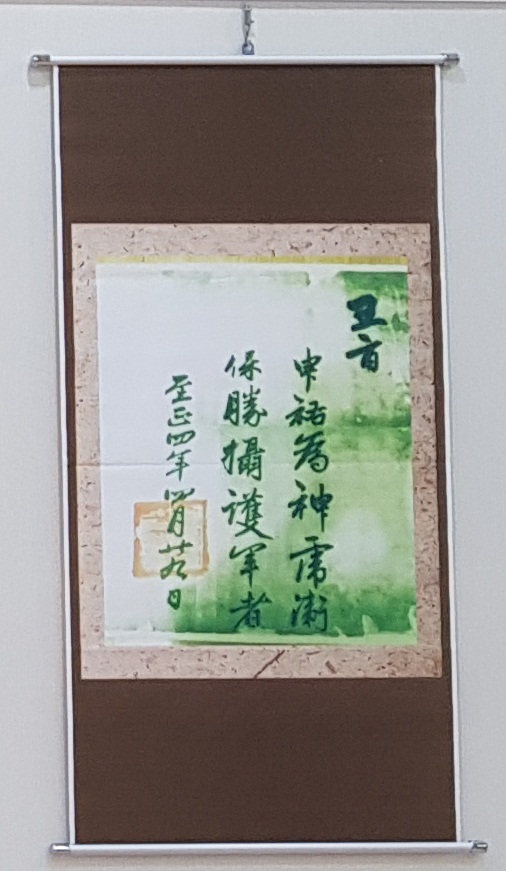 王旨
申祐爲神虎衛
保勝攝護軍者
至正四年四月卄九日